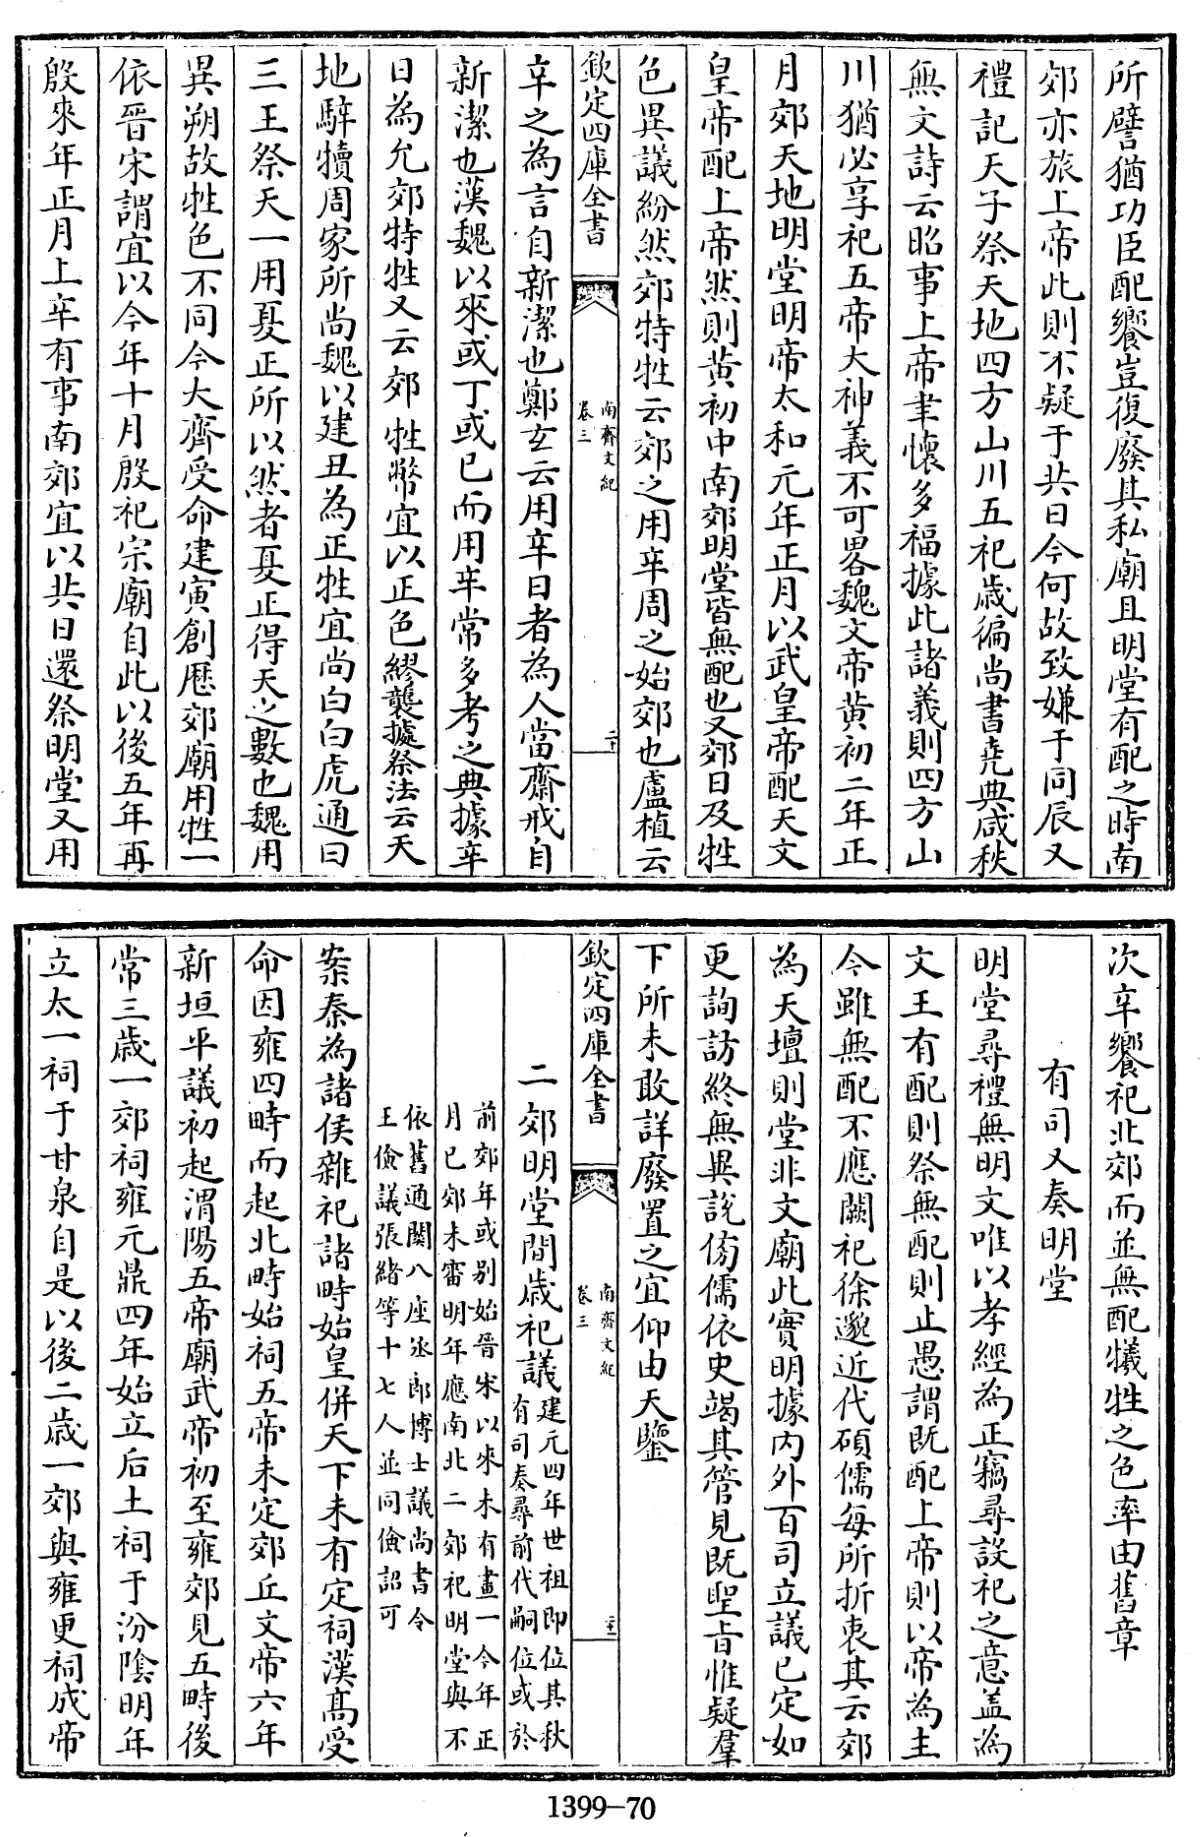 所譬猶功臣配饗豈復廢其私廟且明堂有配之時南
郊亦旅上帝此則不疑于共日今何故致嫌于同辰又
禮記天子祭天地四方山川五祀歲徧尚書堯典咸秩
無文詩云昭事上帝聿懷多福據此諸義則四方山
川猶必享祀五帝大神義不可畧魏文帝黄初二年正
月郊天地明堂明帝太和元年正月以武皇帝配天文
皇帝配上帝然則黄初中南郊明堂皆無配也又郊日及牲
色異議紛然郊特牲云郊之用辛周之始郊也盧植云
欽定四庫全書
南齊文紀
卷三
二十
辛之為言自新潔也鄭玄云用辛日者為人當齋戒自
新潔也漢魏以來或丁或已而用辛常多考之典據辛
日為允郊特牲又云郊牲幣宜以正色繆襲據祭法云天
地騂犢周家所尚魏以建丑為正牲宜尚白白虎通曰
三王祭天一用夏正所以然者夏正得天之數也魏用
異朔故牲色不同今大齊受命建寅創歷郊廟用牲一
依晉宋謂宜以今年十月殷祀宗廟自此以後五年再
殷來年正月上辛有事南郊宜以共日還祭明堂又用
次辛饗祀北郊而並無配犧牲之色率由舊章
有司又奏明堂
明堂尋禮無明文唯以孝經為正竊尋設祀之意蓋為
文王有配則祭無配則止愚謂既配上帝則以帝為主
今雖無配不應闕祀徐邈近代碩儒每所折衷其云郊
為天壇則堂非文廟此實明據内外百司立議已定如
更詢訪終無異說傍儒依史竭其管見既聖旨惟疑羣
下所未敢詳廢置之宜仰由天鑒
欽定四庫全書
南齊文紀
卷三
二十一
二郊明堂間歲祀議
建元四年世祖即位其秋
有司奏尋前代嗣位或於
前郊年或别始晉宋以來未有畫一今年正
月已郊未審明年應南北二郊祀明堂與不
依舊通關八座丞郎博士議尚書令
王儉議張緒等十七人並同儉詔可
案秦為諸侯雜祀諸畤始皇併天下未有定祠漢高受
命因雍四畤而起北畤始祠五帝未定郊丘文帝六年
新垣平議初起渭陽五帝廟武帝初至雍郊見五畤後
常三歲一郊祠雍元鼎四年始立后土祠于汾陰明年
立太一祠于甘泉自是以後二歲一郊與雍更祠成帝
1399-70